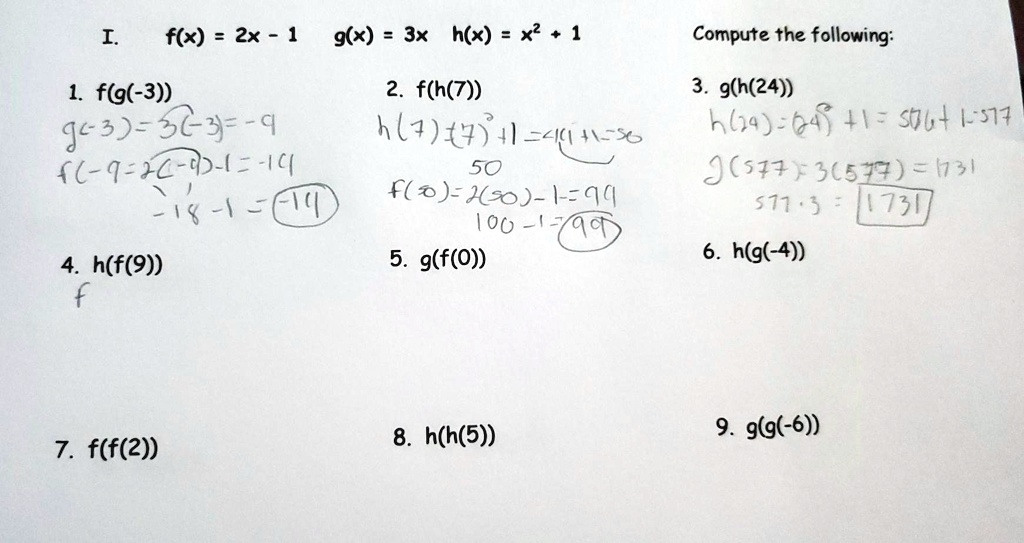 I. f(x) = 2x - 1 g(x) = 3x h(x) = x² + 1 Compute the following:
1. f(g(-3))
g(-3)=3(-3)=-9
f(-9=2(-9)-1=-19
-18-1=-19
2. f(h(7))
h(7)=(7)²+1=49+1=50
50
f(50)=2(50)-1=99
100-1=99
3. g(h(24))
h(24)=(24)²+1=576+1=577
g(577)=3(577)=1731
577·3=1731
4. h(f(9))
f
5. g(f(0))
6. h(g(-4))
7. f(f(2))
8. h(h(5))
9. g(g(-6))